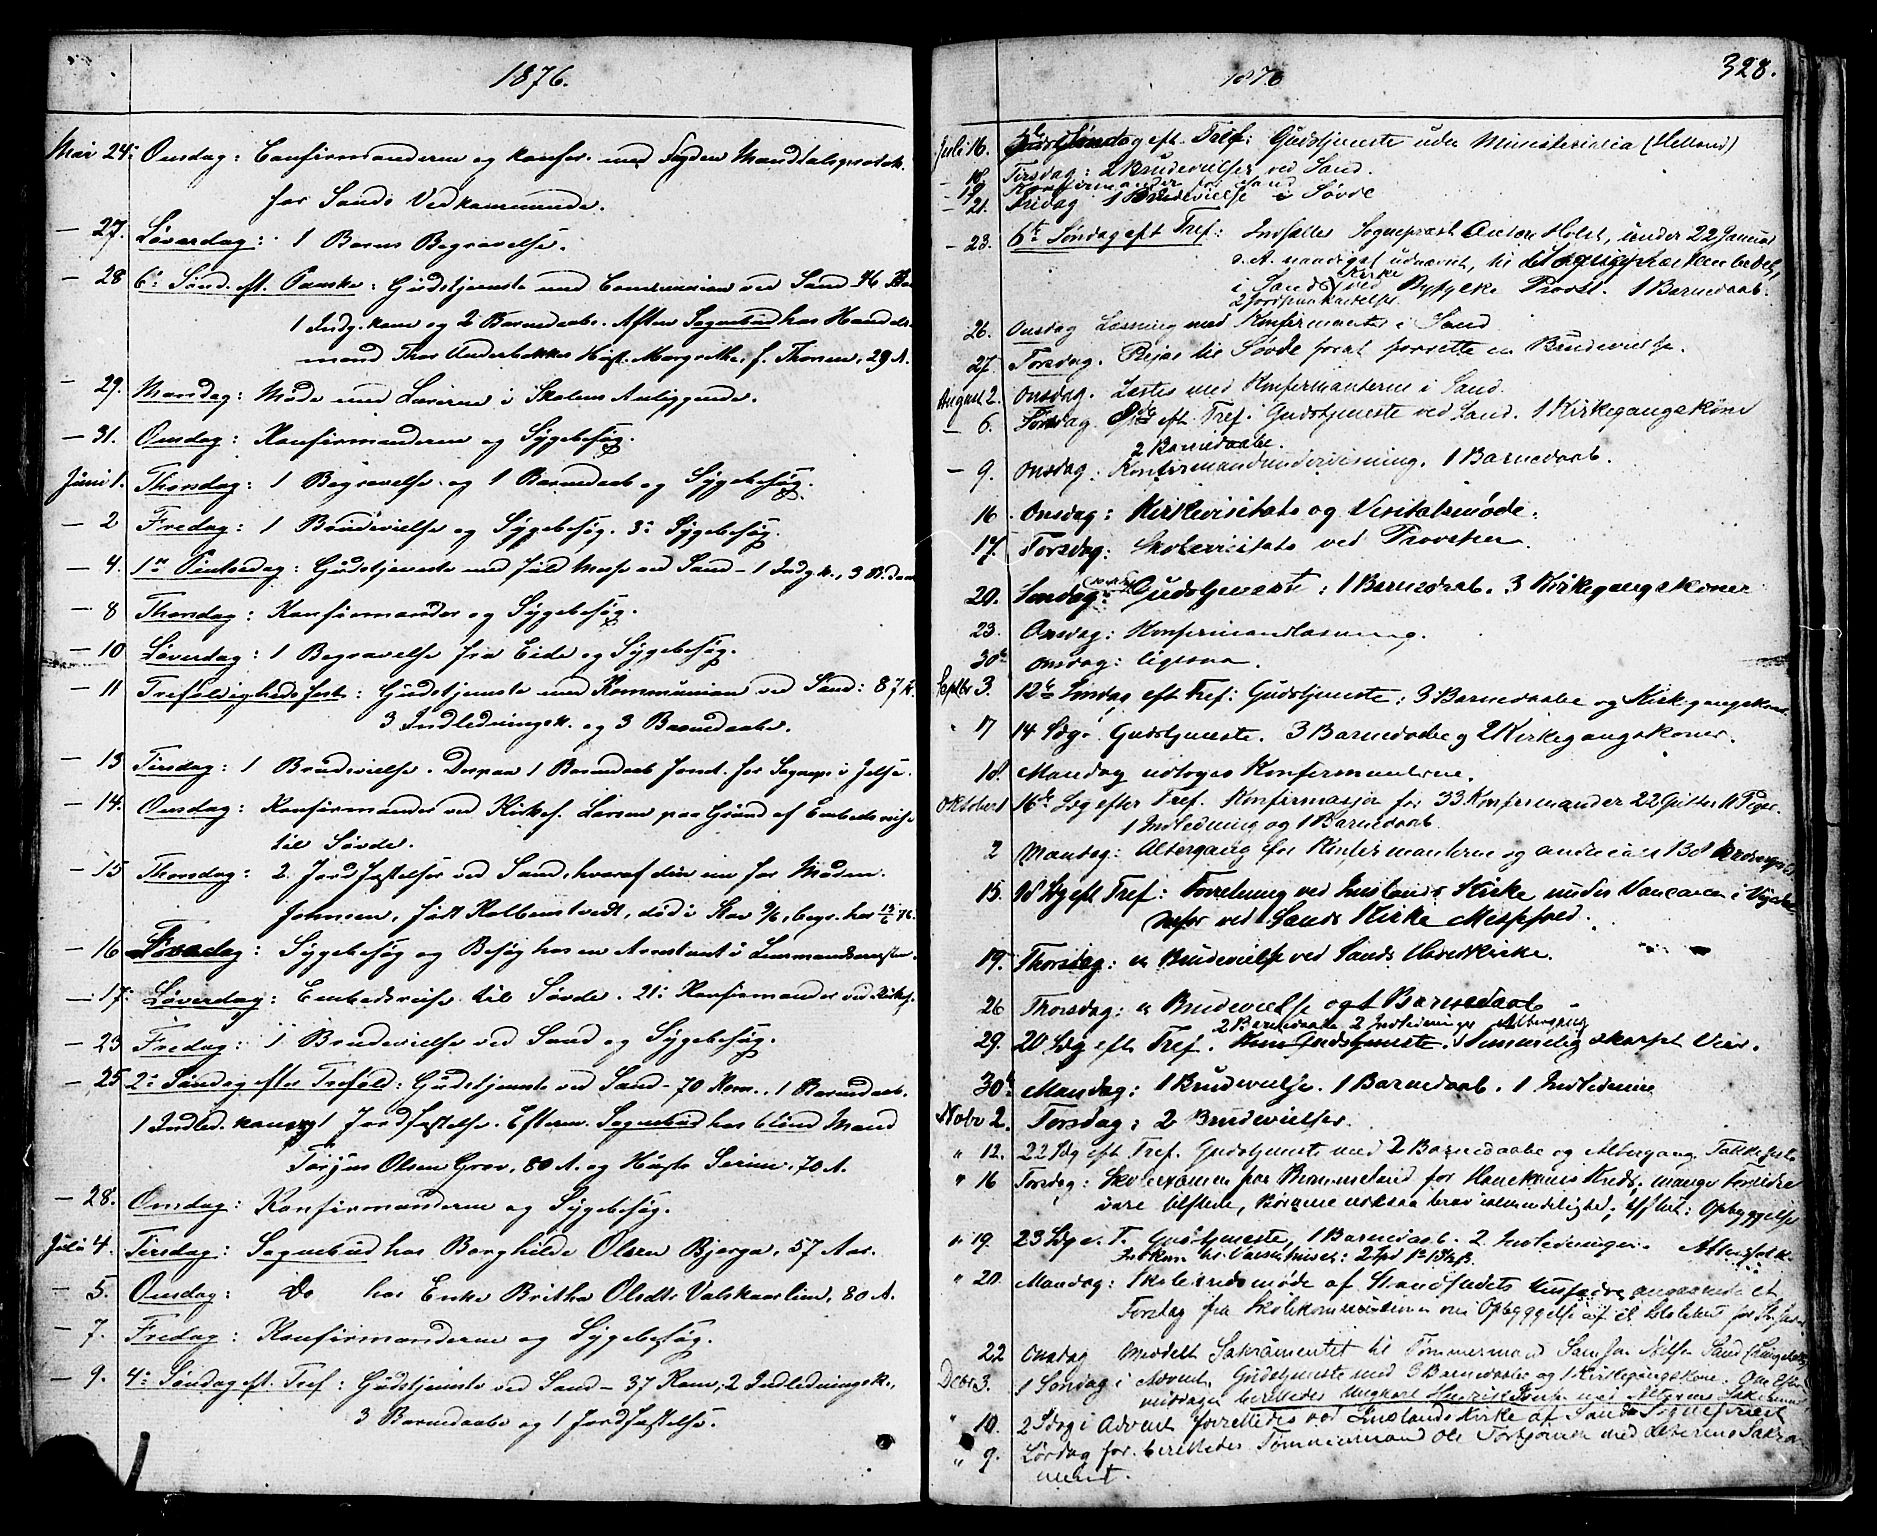 1876.
Mai 24: Onsdag: Confirmanderne og konfer. med Fogden Mandtalsprotok.
for Sands Vedkommende.
— 27. Løverdag: 1 Barns Begravelse.
— 28 6: Sønd. eft. Paaske: Gudstjeneste med Communion ved Sand 46
1 Indg. kone og 2 Barnedaabe. Aften Sognebud hos Handels-
mand Thor Underbakkes Hust. Margrethe, f. Thorsen, 29 A.
— 29. Mandag: Møde med Lærerne i Skolens Anliggende.
— 31. Onsdag: Konfirmanderne og Sygebesøg.
Juni 1. Thorsdag: 1 Begravelse og 1 Barnedaab og Sygebesøg.
— 2 Fredag: 1 Brudevielse og Sygebesøg. 3: Sygebesøg.
— 4. 1ste Pintsedag: Gudstjeneste med fuld Messe ved Sand – 1 Indg. k., 3 B. daab
— 8 Thorsdag: Konfirmander og Sygebesøg.
— 10 Løverdag: 1 Begravelse fra Eide og Sygebesøg.
— 11 Trefoldighedsfest: Gudstjeneste med Kommunion ved Sand: 87 K.
3 Indledningsk. og 3 Barnedaabe.
— 13 Tirsdag: 1 Brudevielse. Derpaa 1 Barnedaab for Sognepr. i Jelse.
— 14. Onsdag: Konfirmander ved Kirkes. Larsen paa Grund af Embedsreise
til Søvde.
— 15 Thorsdag: 2 Jordfæstelser ved Sand, hvoraf den ene for Madm.
Jonsen, født Kolbenstvedt, død i Stav. 9/6, begr. her 15/6 76.
— 16 Fredag: Sygebesøg og Besøg hos en Arrestant i Lensmandens
— 17. Løverdag: Embedsreise til Søvde. 21: Konfirmander ved Kirkes.
— 23 Fredag: 1 Brudevielse ved Sand og Sygebesøg.
— 25 2: Søndag efter Trefold: Gudstjeneste ved Sand – 70 Kom., 1 Barnedaab.
1 Indled. kone og 1 Jordfæstelse. Efterm. Sognebud hos blind Mand
Torjus Olsen Grov, 80 A. og Hustr. Serine, 70 A.
— 28. Onsdag: Konfirmanderne og Sygebesøg.
Juli 4. Tirsdag: Sognebud hos Borghilde Olsen Bjerga, 57 Aar.
— 5. Onsdag: Do hos Enke Britha Olsdtr Valskaarlien, 80 A.
— 7. Fredag: Konfirmanderne og Sygebesøg.
— 9. 4: Søndag eft. Tref: Gudstjeneste ved Sand – 37 Kom, 2 Indledningsk.,
3 Barnedaabe og 1 Jordfæstelse.
1876 328.
Juli 16. Søndag eft. Tref: Gudstjeneste uden Ministerialia (Helland)
— 18. Tirsdag: 2 Brudevielser ved Sand.
— 19 Konfirmander for Sand
— 21. Fredag 1 Brudevielse i Søvde
— 23. 6te Søndag eft Tref: Indsattes Sogneprest Anton Holst, under 22 Januar
d. A. naadigst udnævnt, til det
i Sands Kirke ved Ryfylke Provst. 1 Barnedaab.
2 Jordpaakastelser.
26. Onsdag Læsning med Konfirmanter i Sand
27. Torsdag. Rejas til Søvde forat forrette en Brudevielse.
August 2. Onsdag. Læstes med Konfirmanterne i Sand.
— 6. Søndag. 8de eft Tref Gudstjeneste ved Sand. 1 Kirkegangskone
2 Barnedaabe.
— 9. Onsdag: Konfirmandundervisning. 1 Barnedaab.
16. Onsdag: Kirkevisitats og Visitatsmøde.
17. Torsdag: Skolevisitats ved Provsten.
20. Søndag: Gudstjeneste: 1 Barnedaab. 3 Kirkegangskoner
23. Onsdag: Konfirmandlæsning.
30te Onsdag: ligesaa.
Septbr 3. 12te Søndag eft Tref: Gudstjeneste: 3 Barnedaabe og Kirkegangskone
17 14 Sdg. Gudstjeneste. 3 Barnedaabe og 2 Kirkegangskoner.
18. Mandag udtoges Konfirmanterne.
Oktober 1 16de Sdg efter Tref. Konfirmasjon for 33 Konfirmander 22 Gutter 11 Piger.
1 Indledning og 1 Barnedaab.
2 Mandag: Altergang for Konfirmanterne og andre ialt 138
15. 18 Sdg eft Tref: Forretning ved Imslands Kirke under Vancancen i Vigedal
ved Sands Kirke Messefald.
19. Thorsdag: en Brudevielse ved Sands Hovedkirke.
26 Thorsdag: en Brudevielse og 1 Barnedaab
2 Barnedaabe 2 Indledninger Altergang
29. 20 Sdg eft Tref. Gudstjeneste. Temmelig skarpt Veir.
30te Mandag: 1 Brudevielse. 1 Barnedaab. 1 Indledning
Novbr 2. Torsdag: 2 Brudevielser.
" 12. 22 Sdg eft Tref. Gudstjeneste med 2 Barnedaabe og Altergang. Takkefest.
" 16 Torsdag: Skolexamen paa Brommeland for Kreds; mange Forældre
vare tilstede, Børnene viste brav almindelighed; Opbyggelse
" 19. 23 Sdg e. T. Gudstjeneste, 1 Barnedaab. 2 Indledninger. Altersfolk.
" 20. Mandag: Skolekredsmøde af Strandstedets Husfædre angaaende et
Forslag fra Skolekommissionen om Opbyggelse af et Skolehus for
22 Onsdag meddelt Sakramentet til Tømmermand
Decbr 3. 1 Søndag i Advent Gudstjeneste med 3 Barnedaabe og 1 Kirkegangskone. Om Efter-
middagen berettedes Ungkarl med Alterens Sakrament
" 10. 2 Sdg i Advent forrettedes ved Imslands Kirke af Sands Sogneprest
" 9. Lørdag før. berettedes Tømmermand Ole Torbjørnsen med Alterens Sakra-
ment.